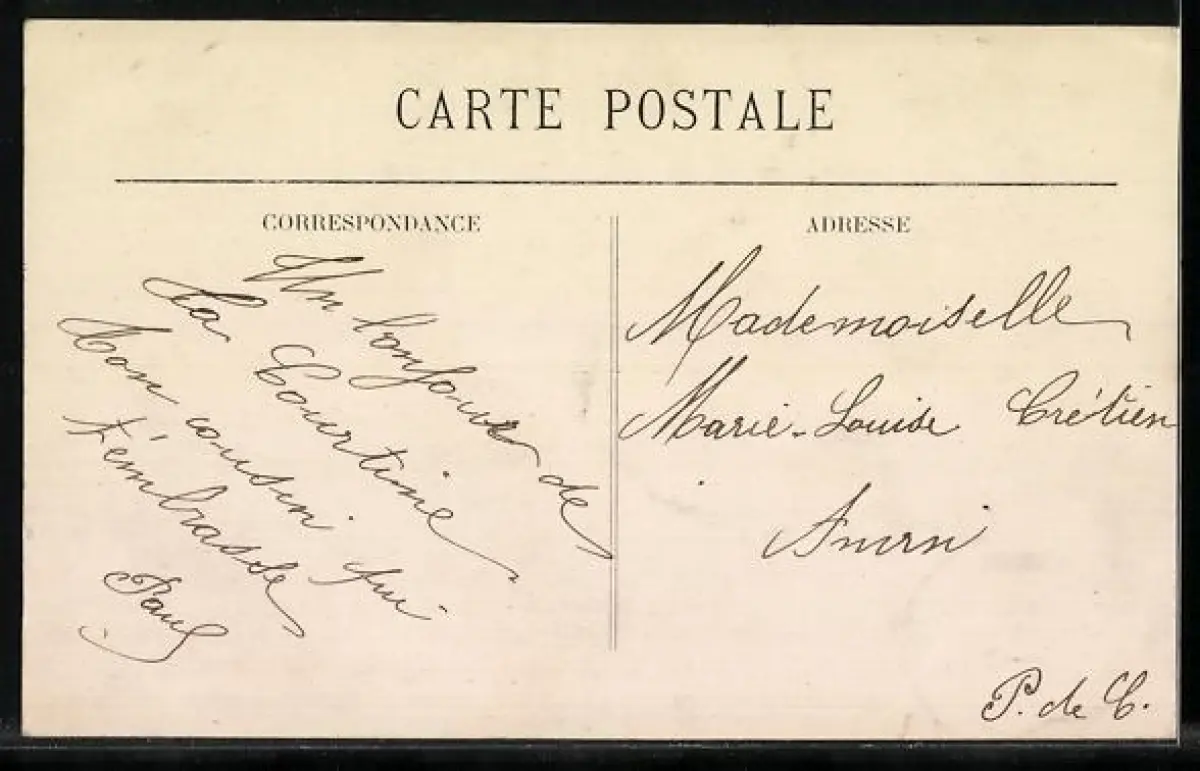 CARTE POSTALE
CORRESPONDANCE
Un bonjour de
La Courtine
Ton cousin qui
t'embrasse
Paul
ADRESSE
Mademoiselle
Marie-Louise Crétien
P. de C.